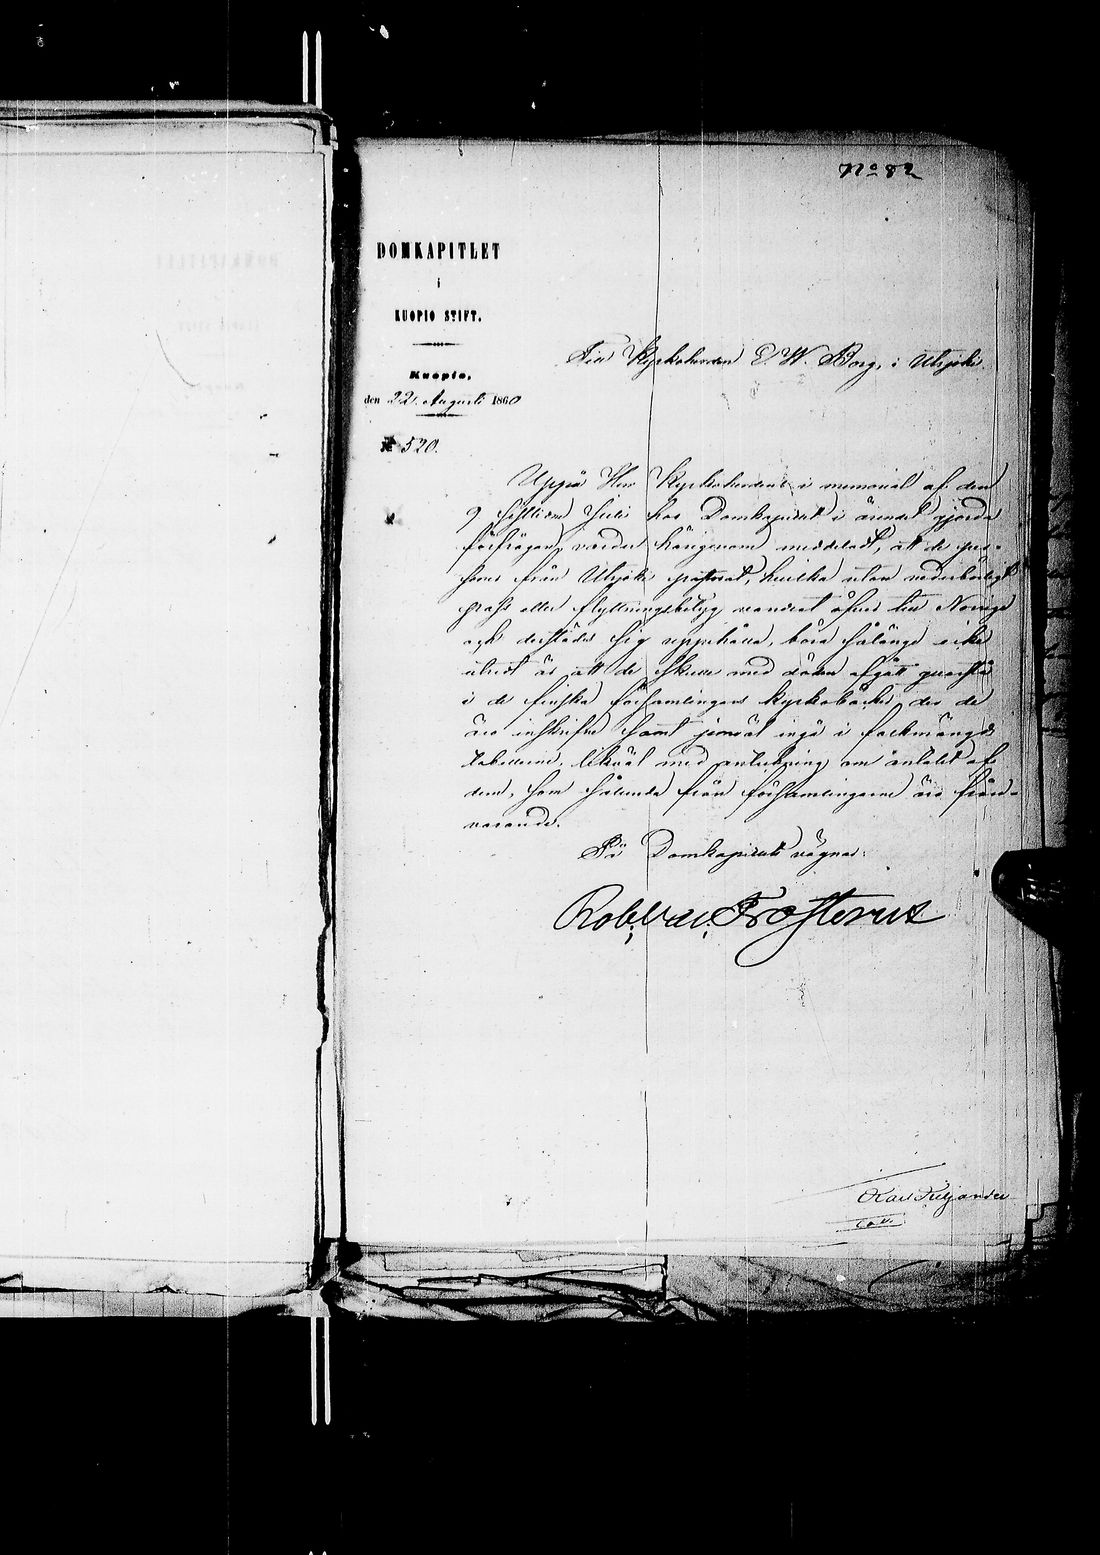 No 82
DOMKAPITLET
i
KUOPIO STIFT.
Kuopio,
den 22 Augusti 1860
№ 520.
Till Kyrkoherden E. W. Borg, i Utsjoki.
Uppå Herr Kyrkoherdens i memorial af den
9 sistlidne Julii hos Domkapitlet i ärendet gjorda
förfrågan, varder härigenom meddeladt, att de per-
soner från Utsjoki pastorat, hvilka utan vederbörligt
pass eller flyttningsbetyg vandrat öfver till Norrige
och derstädes sig uppehålla, böra sålänge icke
utredt är att de skulle med döden afgått qvarstå
i de finska församlingars kyrkoböcker, der de
äro inskrifne samt jemväl ingå i folkmängds
tabellerne, likväl med anteckning om antalet af
dem, som sålunda från församlingarne äro från-
varande.
På Domkapitlets vägnar:
Rob. Val. Frosterus